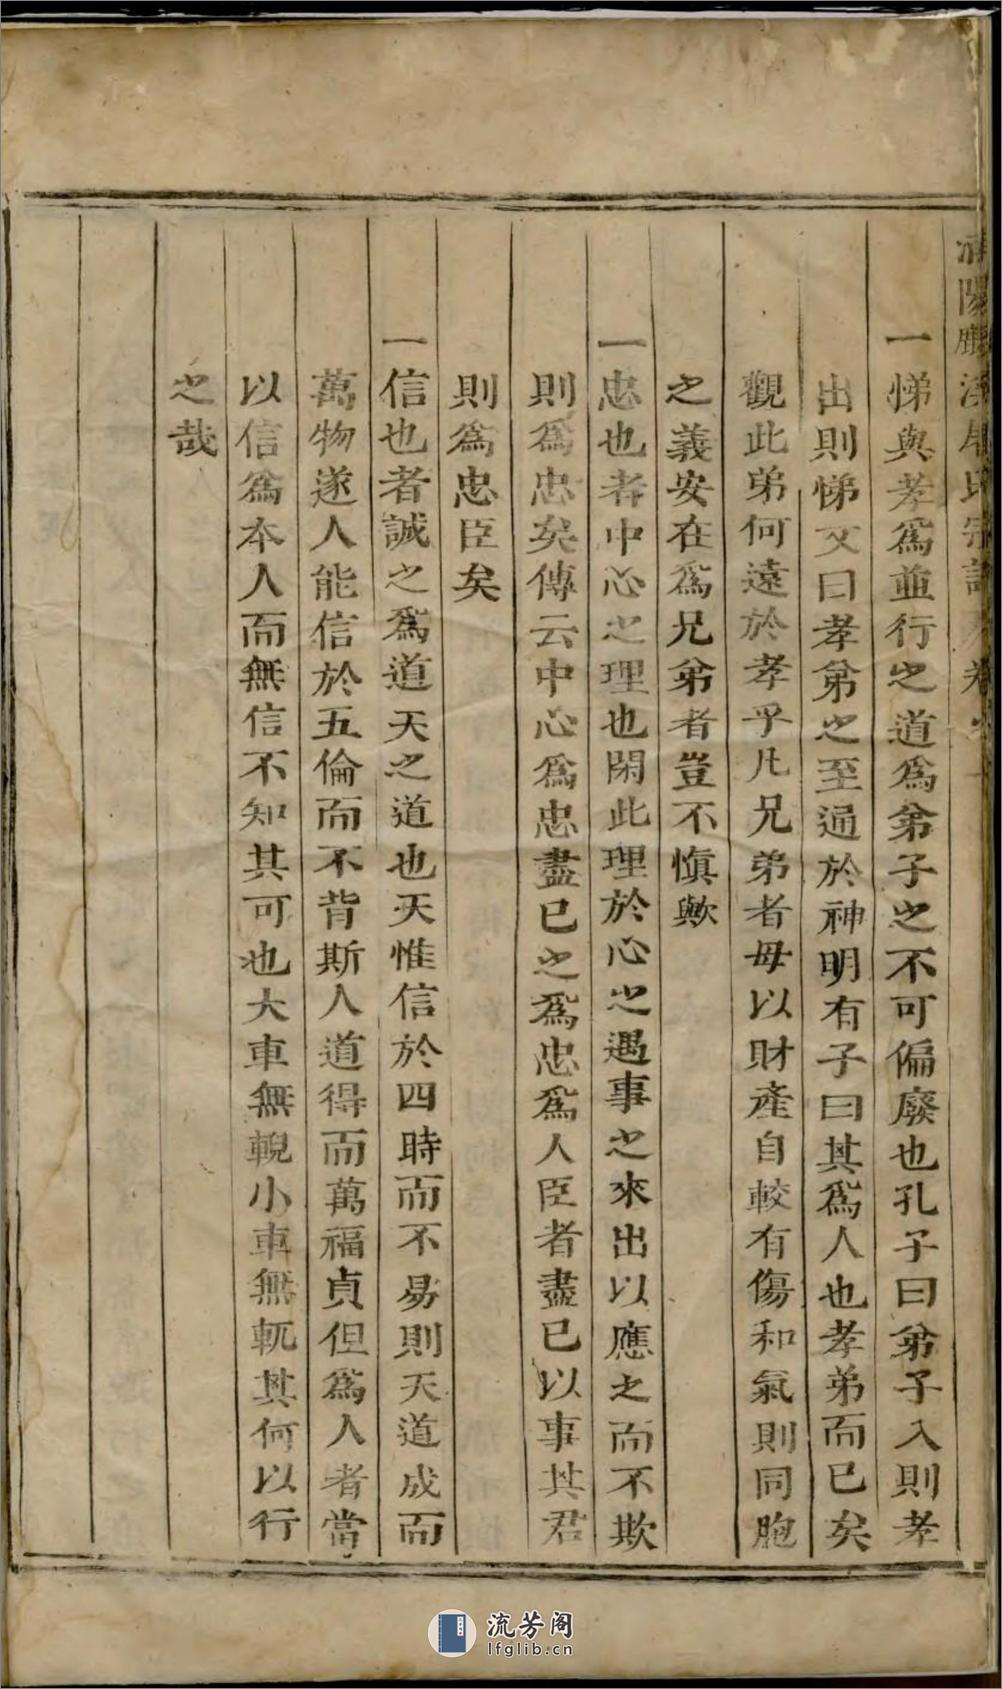 一悌與孝爲並行之道爲弟子之不可偏廢也孔子曰弟子入則孝
出則悌又曰孝弟之至通於神明有子曰其爲人也孝弟而已矣
觀此弟何遠於孝乎凡兄弟者毋以財產自較有傷和氣則同胞
之義安在爲兄弟者豈不慎歟
一忠也者中心之理也閑此理於心之遇事之來出以應之而不欺
則爲忠矣傳云中心爲忠盡已之爲忠爲人臣者盡已以事其君
則爲忠臣矣
一信也者誠之爲道天之道也天惟信於四時而不易則天道成而
萬物遂人能信於五倫而不背斯人道得而萬福貞但爲人者當
以信爲本人而無信不知其可也大車無輗小車無軏其何以行
之哉
流芳阁
lfglib.cn